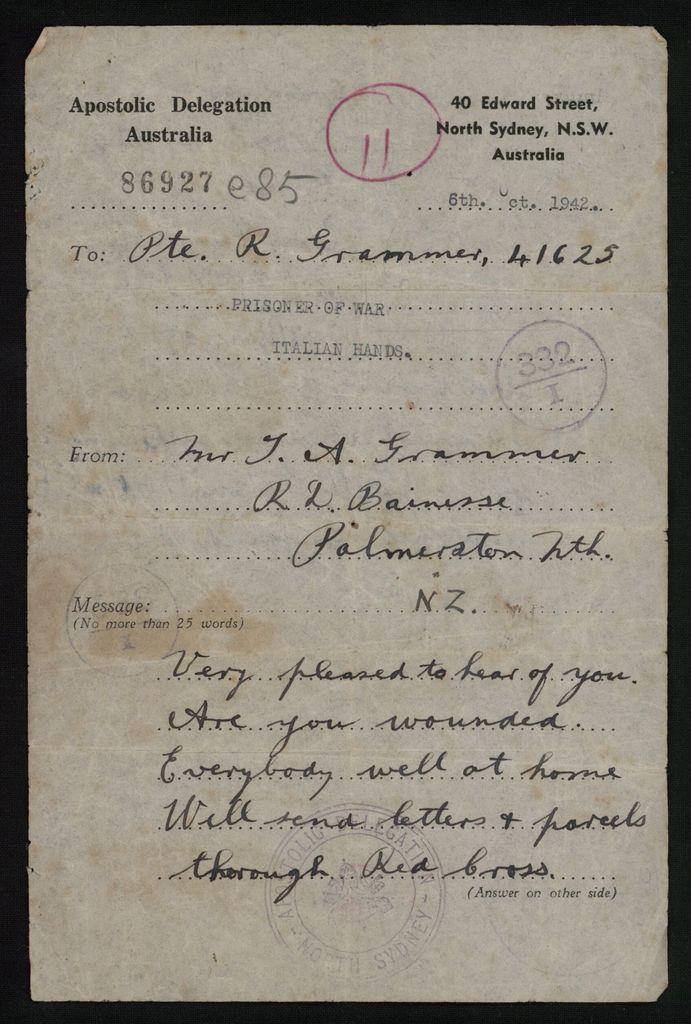 Apostolic Delegation
Australia
40 Edward Street,
North Sydney, N.S.W.
Australia
11
86927 e85
6th. ct. 1942.
To: Pte. R. Grammer, 41625
PRISONER OF WAR
ITALIAN HANDS.
332
I
From: Mr T. A. Grammer
R D. Bainesse
Palmerston Nth.
NZ.
Message:
(No more than 25 words)
Very pleased to hear of you.
Are you wounded.
Everybody well at home
Will send letters & parcels
thorough Red Cross.
(Answer on other side)
APOSTOLIC DELEGATION
NORTH SYDNEY